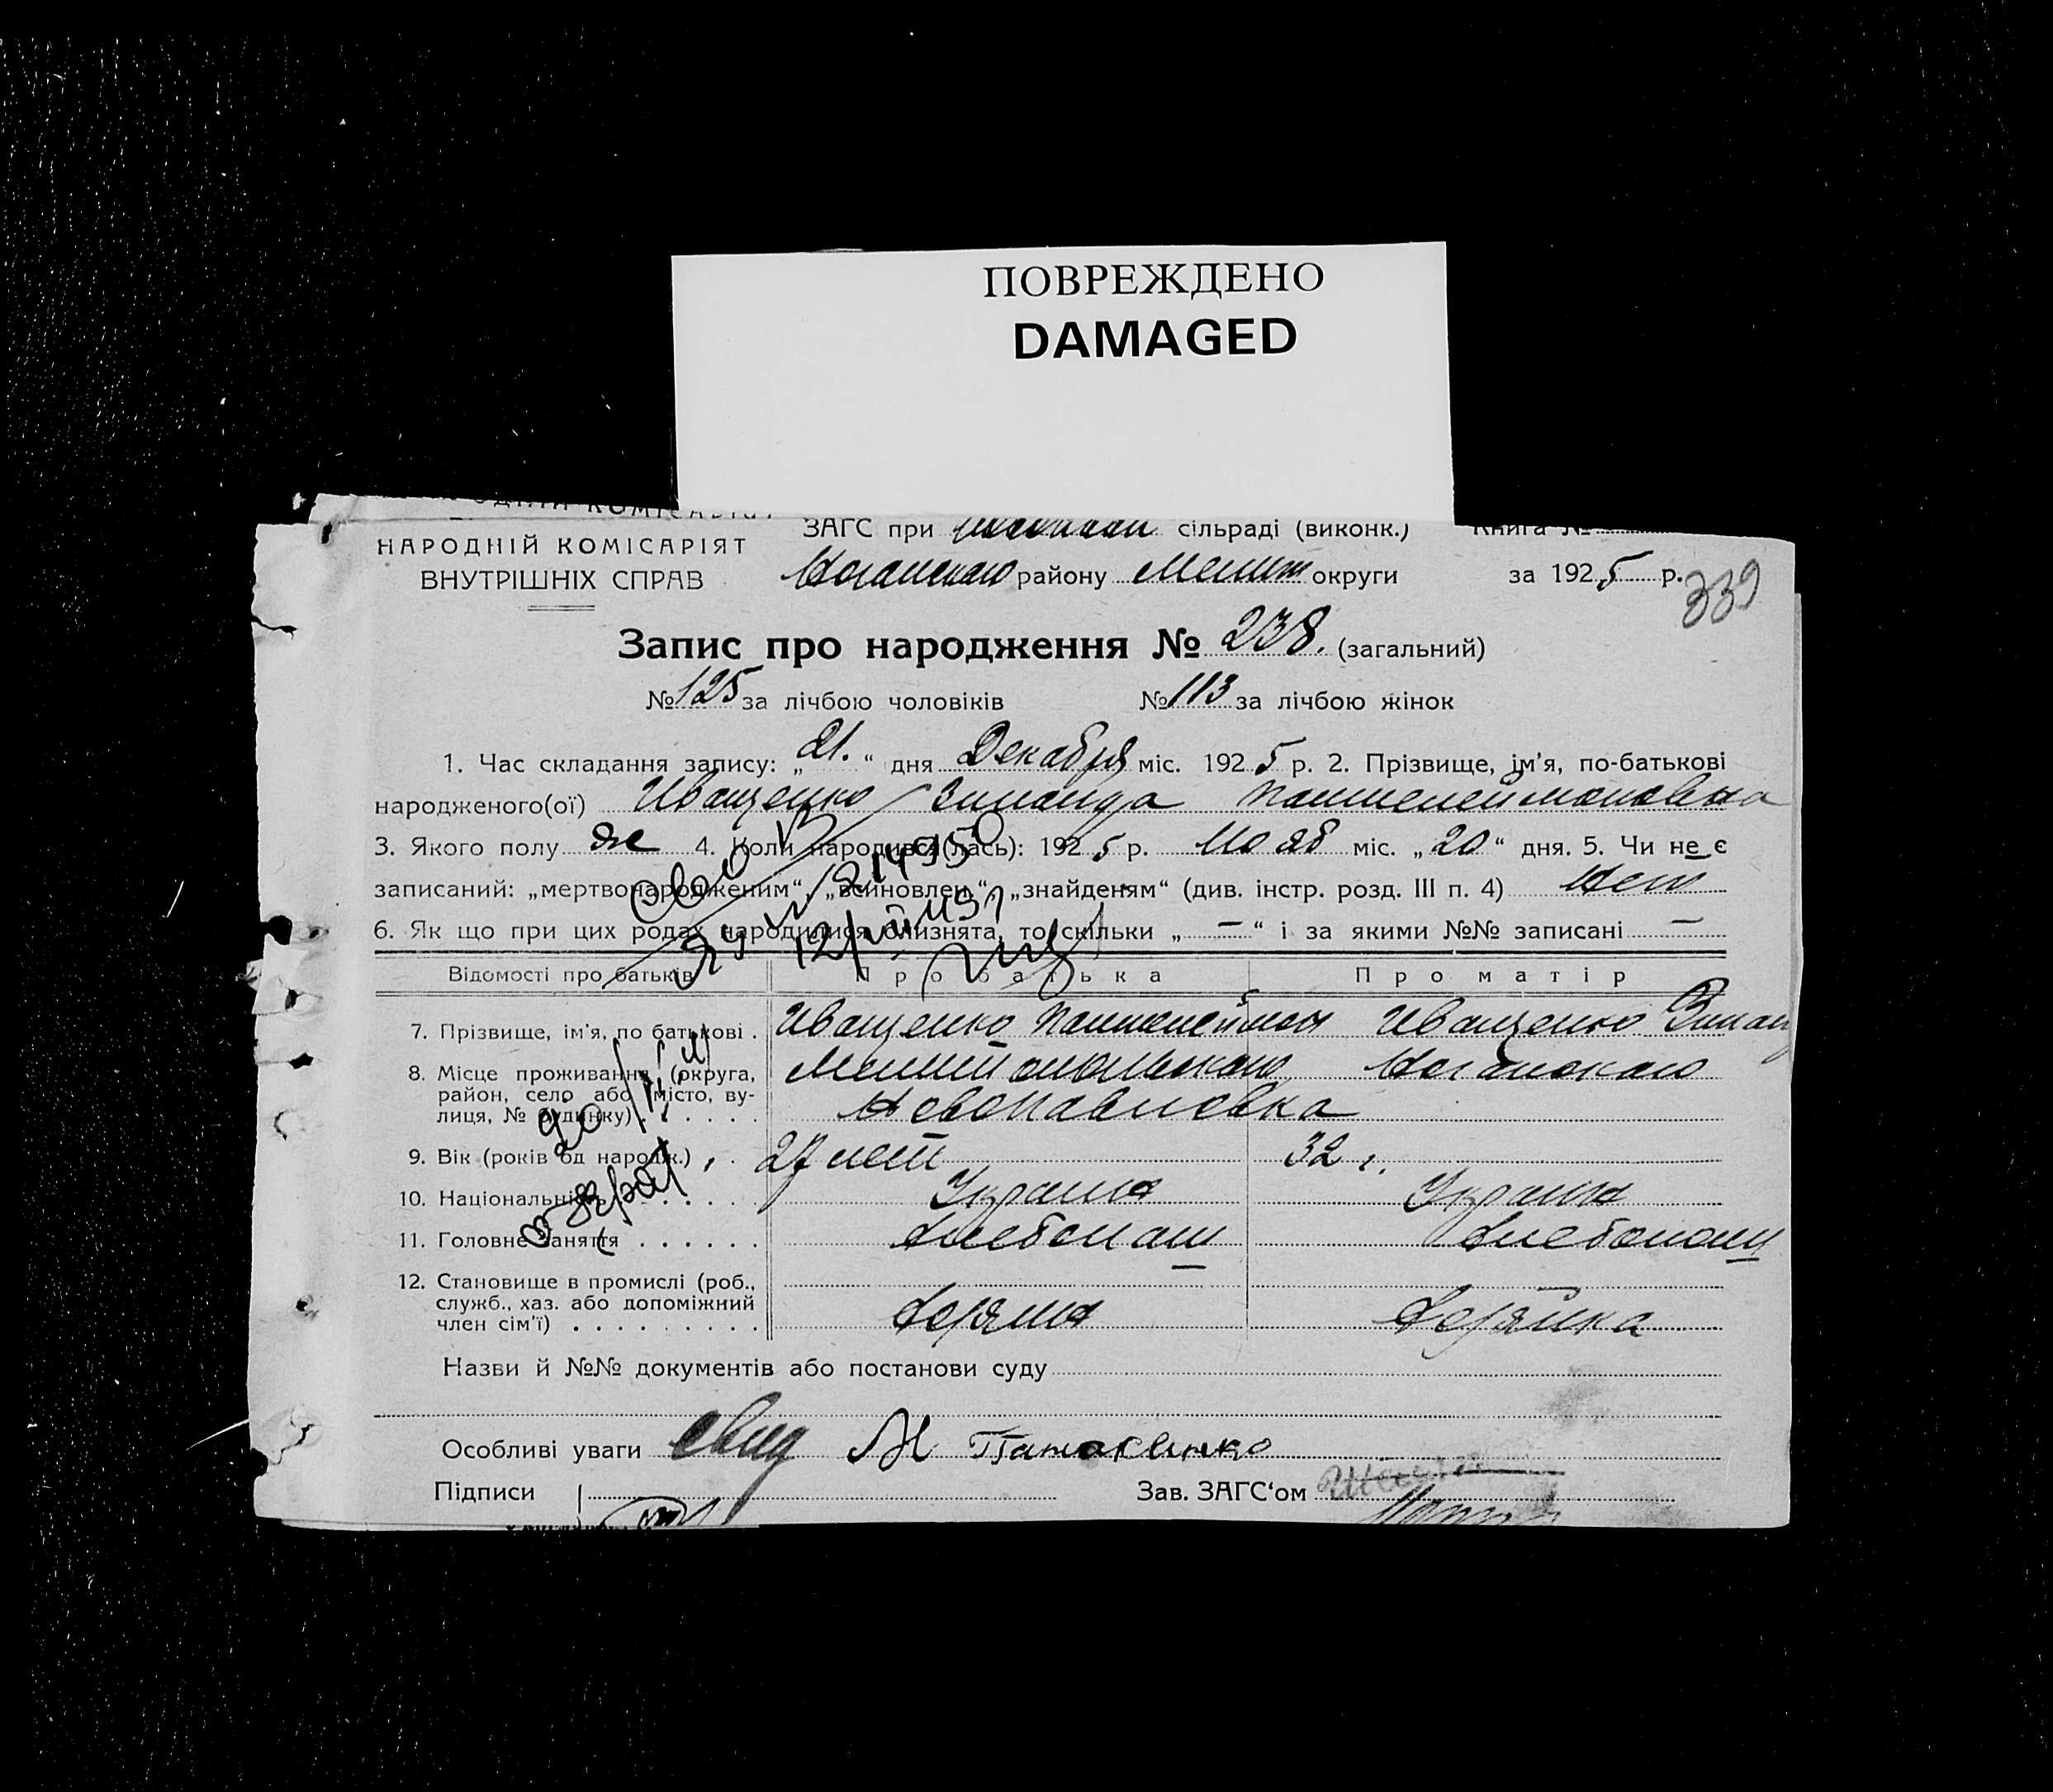 ПОВРЕЖДЕНО
DAMAGED
НАРОДНІЙ КОМІСАРІЯТ
ВНУТРІШНІХ СПРАВ
ЗАГС при сільраді (виконк.) Книга №
Ногайского району Мелит округи за 1925 р.
339
Запис про народження № 238. (загальний)
№ 125 за лічбою чоловіків № 113 за лічбою жінок
1. Час складання запису: „21.“ дня Декабря міс. 1925 р. 2. Прізвище, ім’я, по-батькові
народженого(ої) Иващенко Зинаида Пантелеймоновна
3. Якого полу же 4. Коли народився(лась): 1925 р. Нояб міс. „20“ дня. 5. Чи не є
записаний: „мертвонародженим“, „всиновлен.“, „знайденям“ (див. інстр. розд. III п. 4) Нет
6. Як що при цих родах народилися близнята, то скільки „—“ і за якими №№ записані —
Відомості про батьків Про батька Про матір
7. Прізвище, ім’я, по батькові . Иващенко Пантелеймон Иващенко Зинаи
8. Місце проживання (округа, район, село або місто, вулиця, № будинку) Мелитопольского Ногайского
Новопавловка
9. Вік (років од народж.) 27 лет 32 г.
10. Національність Украин Украин
11. Головне заняття Хлебопаш Хлебопаш
12. Становище в промислі (роб.,
служб., хаз. або допоміжний
член сім’ї) Хозяин Хозяйка
Назви й №№ документів або постанови суду
Особливі уваги
Підписи Зав. ЗАГС‘ом